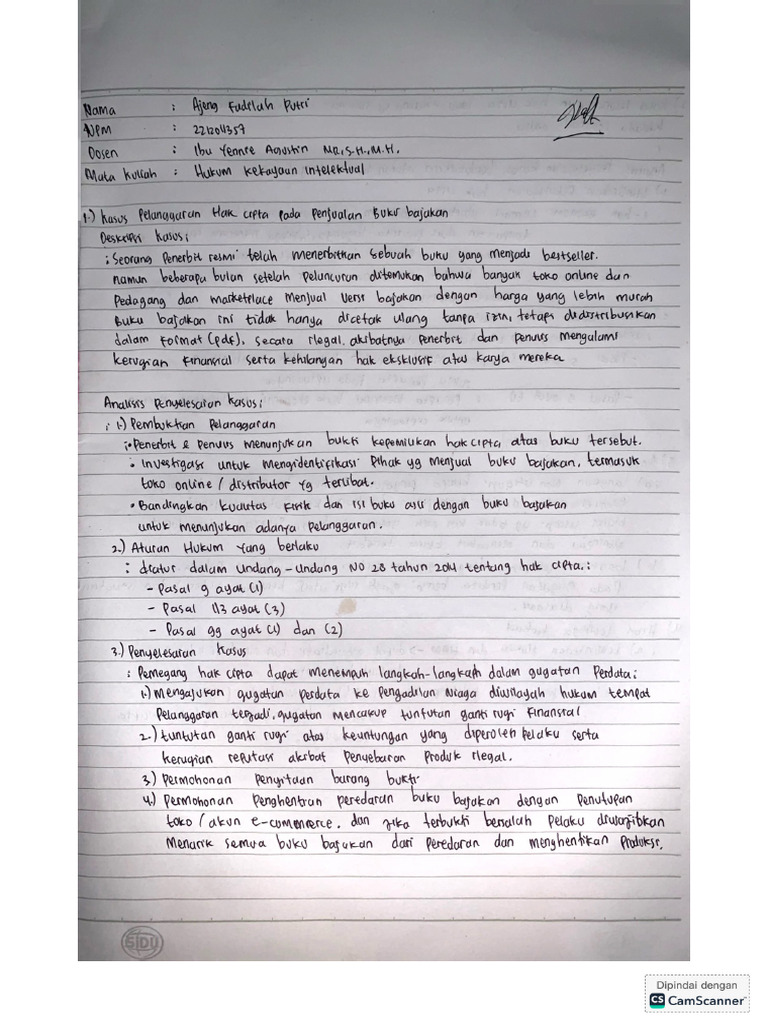 Nama : Ajeng Fadelah Putri
NPM : 221204357
Dosen : Ibu Yennie Agustin MR, S.H., M.H.
Mata Kuliah : Hukum Kekayaan Intelektual
1.) Kasus Pelanggaran Hak Cipta Pada Penjualan Buku bajakan
Deskripsi Kasus :
: Seorang Penerbit resmi telah menerbitkan sebuah buku yang menjadi bestseller.
namun beberapa bulan setelah Peluncuran ditemukan bahwa banyak toko online dan
Pedagang dan marketplace Menjual Versi bajakan dengan harga yang lebih murah
Buku bajakan ini tidak hanya dicetak ulang tanpa izin, tetapi didistribusikan
dalam format (pdf), secara ilegal. akibatnya penerbit dan penulis mengalami
kerugian Finansial serta kehilangan hak eksklusif atas karya mereka
Analisis Penyelesaian Kasus ;
: 1.) Pembuktian Pelanggaran
• Penerbit & Penulis menunjukan bukti kepemilikan hak cipta atas buku tersebut.
• Investigasi untuk Mengidentifikasi Pihak yg menjual buku bajakan, termasuk
toko online / distributor yg terlibat.
• Bandingkan kualitas fisik dan isi buku asli dengan buku bajakan
untuk menunjukan adanya Pelanggaran.
2.) Aturan Hukum Yang berlaku
: diatur dalam Undang-Undang NO 28 tahun 2014 tentang hak cipta. :
- Pasal 9 ayat (1)
- Pasal 113 ayat (3)
- Pasal 99 ayat (1) dan (2)
3.) Penyelesaian Kasus
: Pemegang hak cipta dapat menempuh langkah-langkah dalam gugatan Perdata :
1.) Mengajukan gugatan perdata ke Pengadilan Niaga diwilayah hukum tempat
Pelanggaran terjadi. gugatan mencakup tuntutan ganti rugi Finansial
2.) tuntutan ganti rugi atas keuntungan yang diperoleh pelaku serta
kerugian reputasi akibat Penyebaran Produk ilegal.
3.) Permohonan Penyitaan barang bukti
4.) Permohonan Penghentian peredaran buku bajakan dengan Penutupan
toko / akun e-commerce. dan jika terbukti bersalah Pelaku diwajibkan
Menarik semua buku bajakan dari Peredaran dan menghentikan Produksi.
SIDU
Dipindai dengan
CS CamScanner